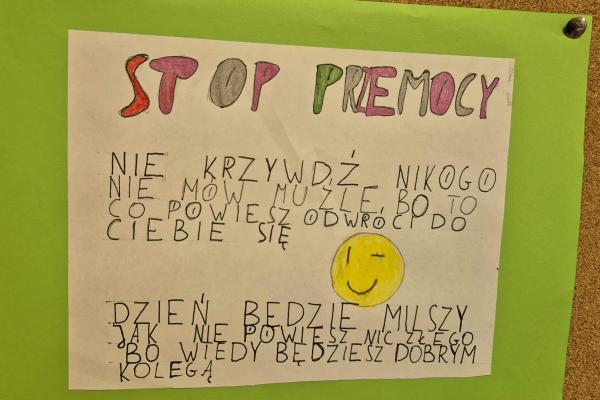 STOP PRZEMOCY
NIE KRZYWDŹ NIKOGO
NIE MÓW MU ŹLE, BO TO
CO POWIESZ ODWRÓCI DO
CIEBIE SIĘ
DZIEŃ BĘDZIE MUSZY
JAK NIE POWIESZ NIC ZŁEGO
BO WTEDY BĘDZIESZ DOBRYM
KOLEGĄ